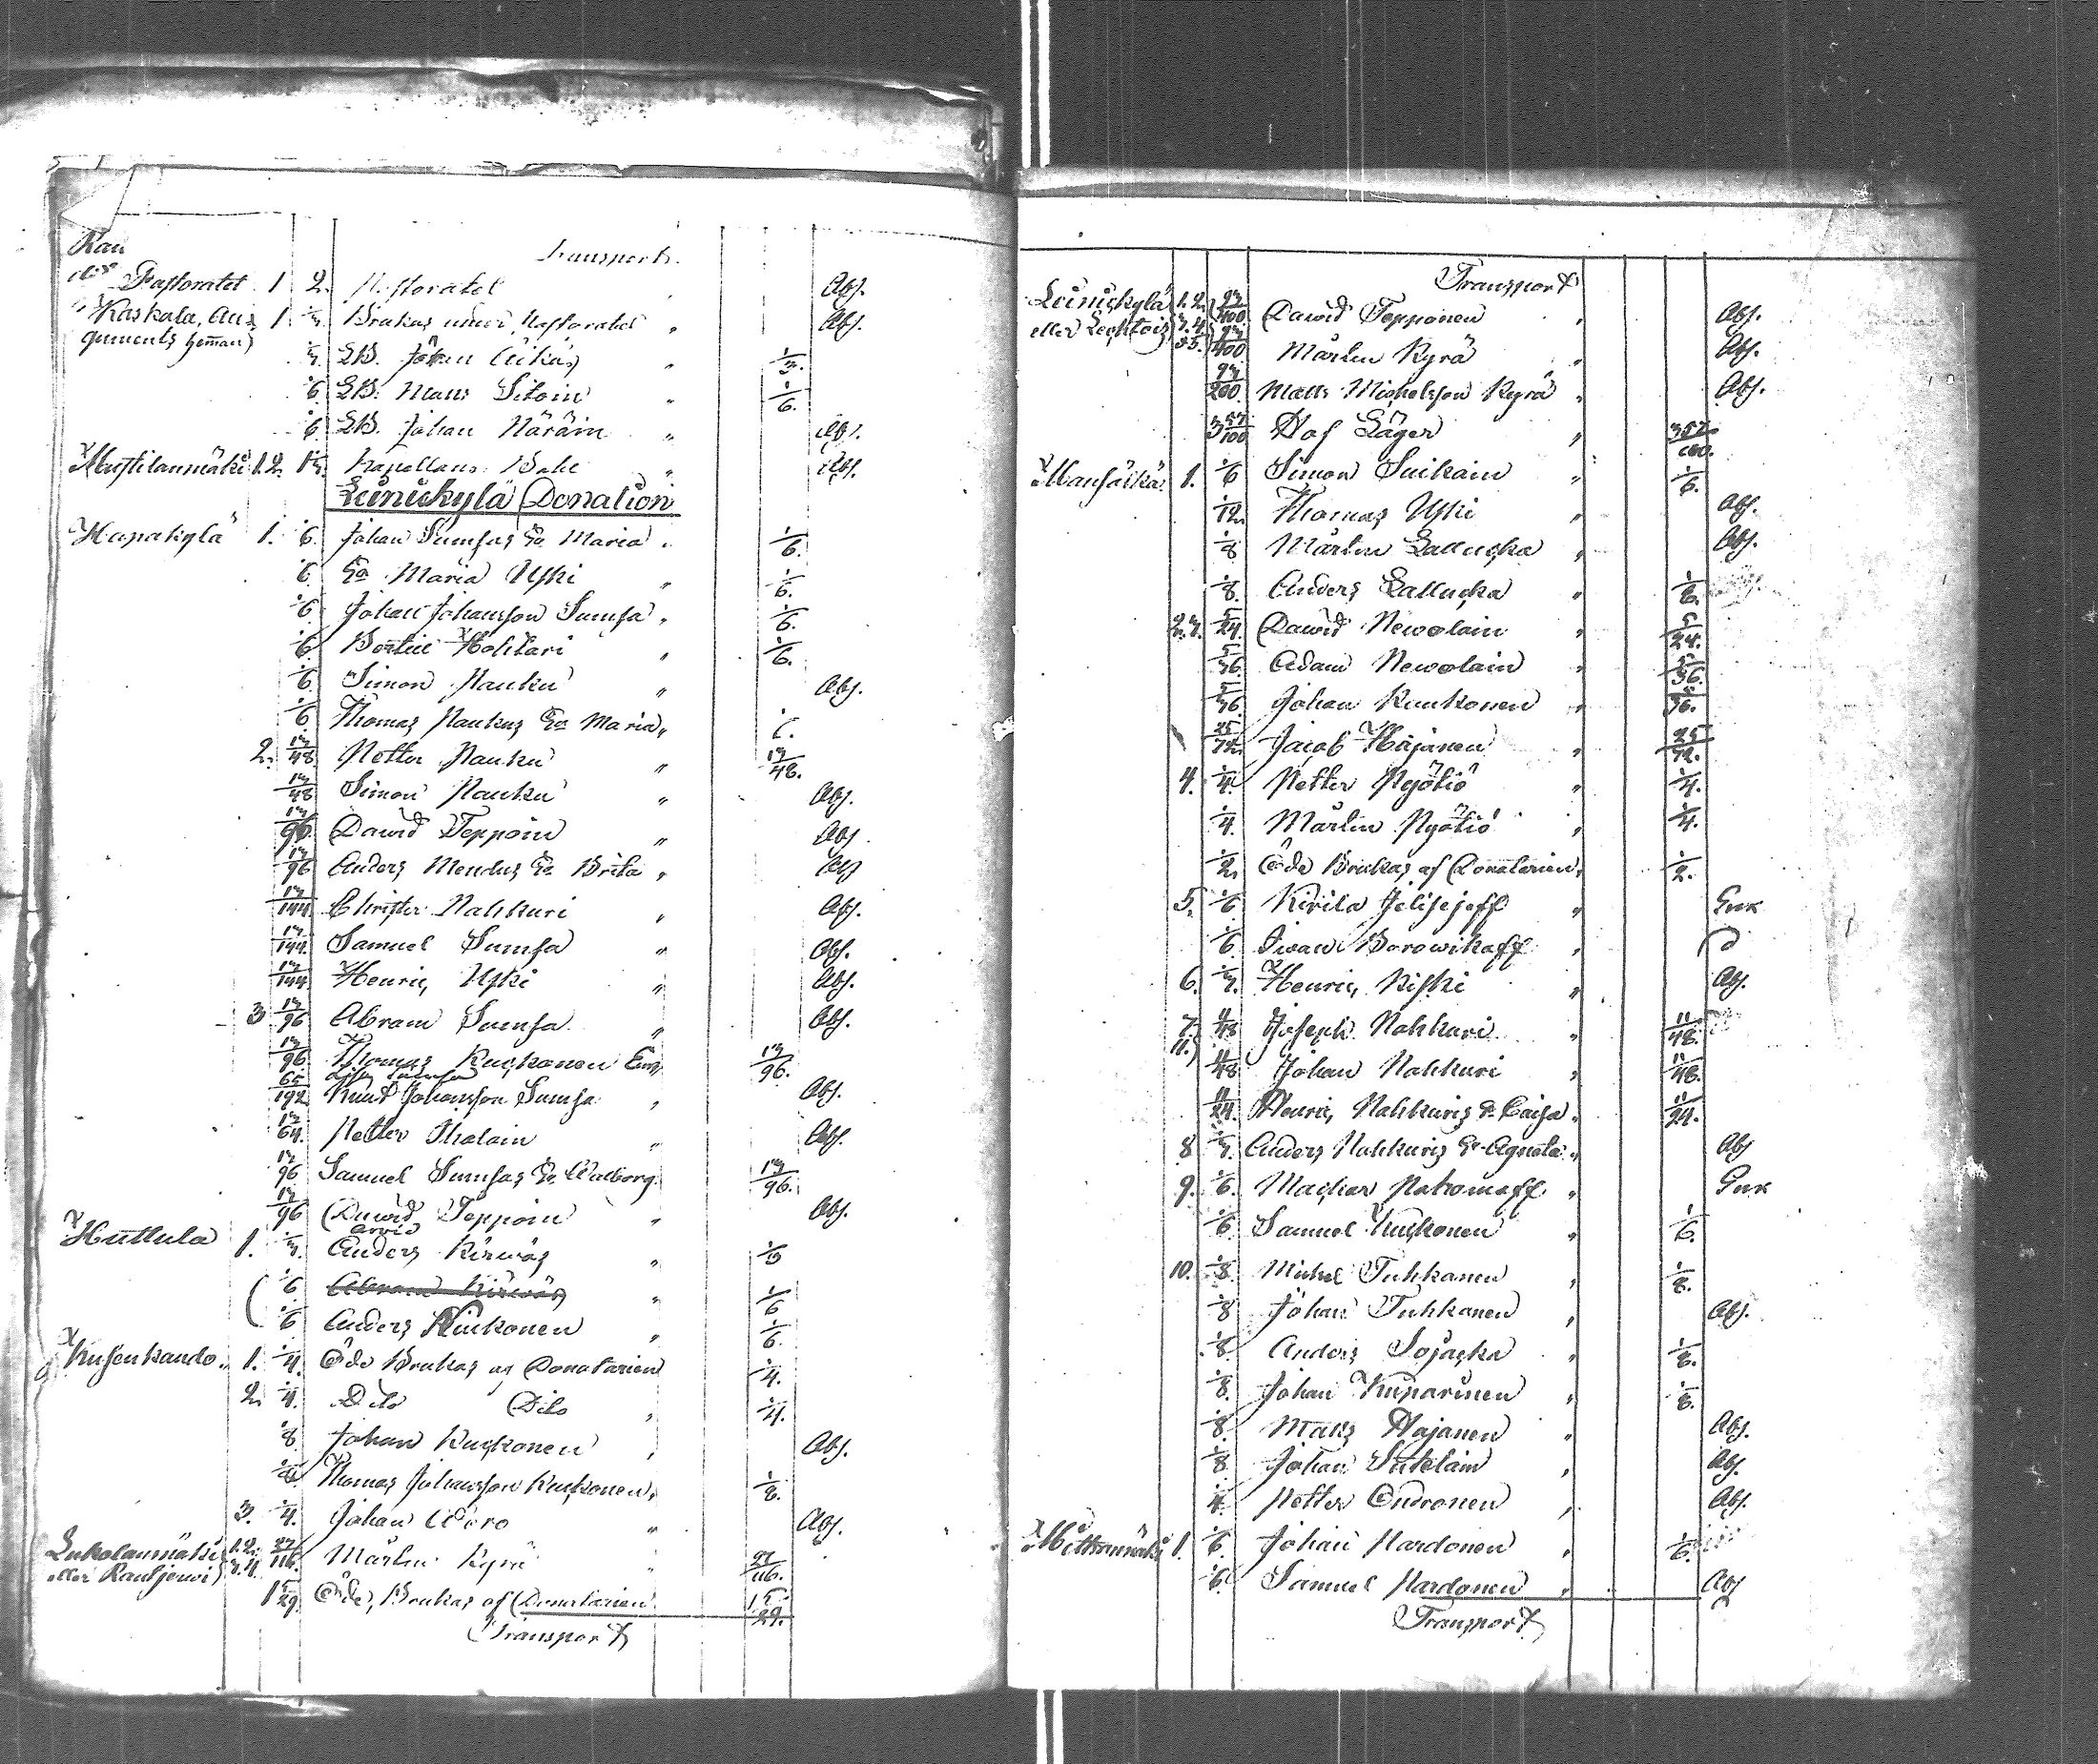 Transport
Pastoratet 1 2. Pastoratet Abs.
Kaskala, Aug 1 1/3 Brukas under Pastoratet " Abs.
guments heman)
1/3 LB. Johan " 1/3.
1/6 LB. Matts Sitoin " 1/6.
1/6 LB. Johan Näräin " Abs.
Mustilanmäki 1.2. Kapellans Bohl " Abs.
Leinickylä Donation
Hapakylä 1. 1/6. Johan Sumsas Ea Maria " 1/6.
1/6 Ea Maria Uski " 1/6.
1/6 Johan Johansson Sumsa " 1/6.
1/6 Bertil Hölttari " 1/6.
1/6 Simon Pauku " Abs.
1/6 Thomas Paukus Ea Maria "
2. 13/48 Petter Pauku " 13/48.
13/48 Simon Pauku " Abs.
13/96 David Teppoin " Abs
13/96 Anders Ea Brita " Abs
13/144 Christer Nahkuri " Abs.
13/144 Samuel Sumsa " Abs.
13/144 Henric Uski " Abs.
3 13/96 Abram Sumsa " Abs.
13/96 Thomas Kuckonen 13/96.
65/192 Knut Johansson Sumsa " Abs.
13/64. Petter Ihalain " Abs.
13/96 Samuel Sumsas Ea Walborg 13/96.
13/96 David Teppoin " Abs.
Arvid
Huttula 1. 1/3 Anders Kirwäs " 1/3
1/6 Abram Kirwäs " 1/6
1/6 Anders Kuckonen " 1/6.
Kusenkando. 1. 1/4. Öde Brukas af Donatarien 1/4.
2. 1/4. Dito Dito " 1/4.
1/8 Johan Kuckonen " Abs.
1/8 Thomas Johansson Kuckonen " 1/8.
3. 1/4. Johan Woro " Abs.
Lukolanmäki 1.2. 27/116. Mårten Kyrä " 27/116.
eller Rautjerwi) 3.4.
1 5/29 Öde, Brukas af Donatarien 1 5/29.
Transport
Transport
Leinickylä 1.2. 93/400 David Tepponen " Abs.
eller Lechtois) 3.4. 93/400 Mårten Kyrä " Abs.
93/200. Matts Michelsson Kyrä " Abs.
3 57/100 Hof Läger " 3 57/100.
Mansikka 1. 1/6 Simon Suikain " 1/6.
1/12 Thomas Uski " Abs.
1/8 Mårten Lallucka " Abs.
1/8. Anders Lallucka " 1/8.
2.3. 5/24. David Newalain " 5/24.
5/36. Adam Newalain " 5/36.
5/36. Johan Kuukonen " 5/36.
25/72 Jacob Häjänen " 25/72.
4. 1/4. Petter Pyötiö " 1/4.
1/4. Mårten Pyötiö " 1/4.
1/2. Öde Brukas af Donatarien " 1/2.
5. 1/6. Kirila Jelisejeff "
1/6 Iwan Borowikoff "
6. 1/3. Henric Kiski " Abs.
7. 11/48 Joseph Nahkuri " 11/48.
11.) 11/48 Johan Nahkuri " 11/48.
11/24. Henric Nahkuris E. Caisa " 11/24.
8 1/3 Anders Nahkuris Ea Agneta " Abs
9. 1/6. Mackar Pahomoff "
1/6. Samuel Kuckonen " 1/6.
10. 1/8. Michel Tuhkanen " 1/8.
1/8 Johan Tuhkanen " Abs.
1/8. Anders Sojacka " 1/8.
1/8. Johan Kuparinen " 1/8.
1/8. Matts Hajanen " Abs.
1/8 Johan Sutelain " Abs.
1/4. Petter Ondronen " Abs.
1. 1/6. Johan Pardonen " 1/6.
1/6. Samuel Pardonen " Abs
Transport